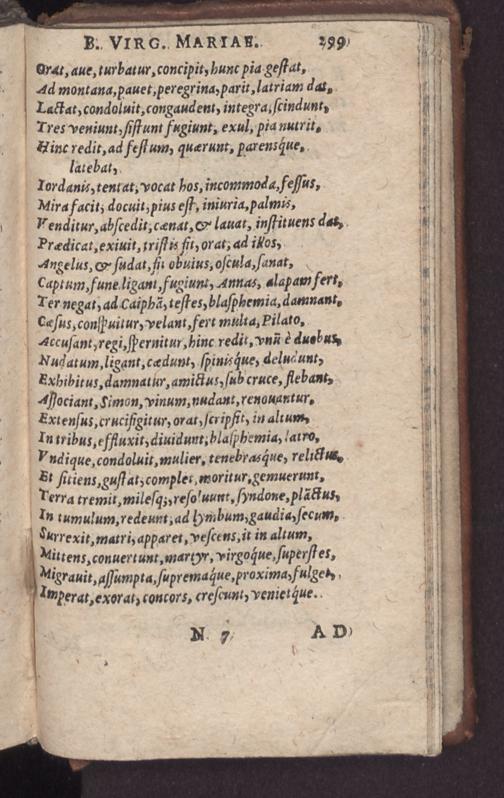 B. VIRG. MARIAE. 299
Orat, aue, turbatur, concipit, hunc pia gestat,
Ad montana, pauet, peregrina, parit, latriam dat,
Lactat, condoluit, congaudent, integra, scindunt,
Tres veniunt, sistunt fugiunt, exul, pia nutrit,
Hinc redit, ad festum, quærunt, parensq́ue,
latebat,
Iordanis, tentat, vocat hos, incommoda, fessus,
Mira facit, docuit, pius est, iniuria, palmis,
Venditur, abscedit, cænat, & lauat, instituens dat,
Prædicat, exiuit, tristis fit, orat, ad illos,
Angelus, & sudat, fit obuius, oscula, sanat,
Captum, fune ligant, fugiunt, Annas, alapam fert,
Ter negat, ad Caiphã, testes, blasphemia, damnant,
Cæsus, conspuitur, velant, fert multa, Pilato,
Accusant, regi, spernitur, hinc redit, vnũ è duobus,
Nudatum, ligant, cædunt, spinisque, deludunt,
Exhibitus, damnatur, amictus, sub cruce, flebant,
Associant, Simon, vinum, nudant, renouantur,
Extensus, crucifigitur, orat, scripsit, in altum,
In tribus, effluxit, diuidunt, blasphemia, latro,
Vndique, condoluit, mulier, tenebrasq́ue, relictus,
Et sitiens, gustat, complet, moritur, gemuerunt,
Terra tremit, milesq;, resoluunt, syndone, plãctus,
In tumulum, redeunt, ad lymbum, gaudia, secum,
Surrexit, matri, apparet, vescens, it in altum,
Mittens, conuertunt, martyr, virgoq́ue, superstes,
Migrauit, assumpta, supremaq́ue, proxima, fulget,
Imperat, exorat, concors, crescunt, venietq́ue.
N 7 AD